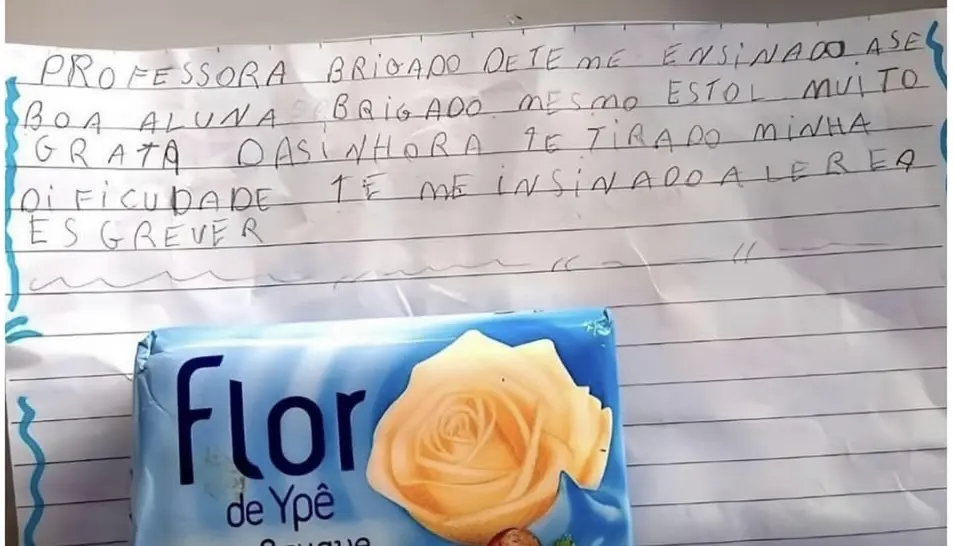 PROFESSORA BRIGADO DETE ME ENSINADO ASE
BOA ALUNA BRIGADO MESMO ESTOL MUITO
GRATA DASINHORA TE TIRADO MINHA
DIFICUDADE TE ME INSINADO A LER EA
ESGREVER
Flor
de Ypê